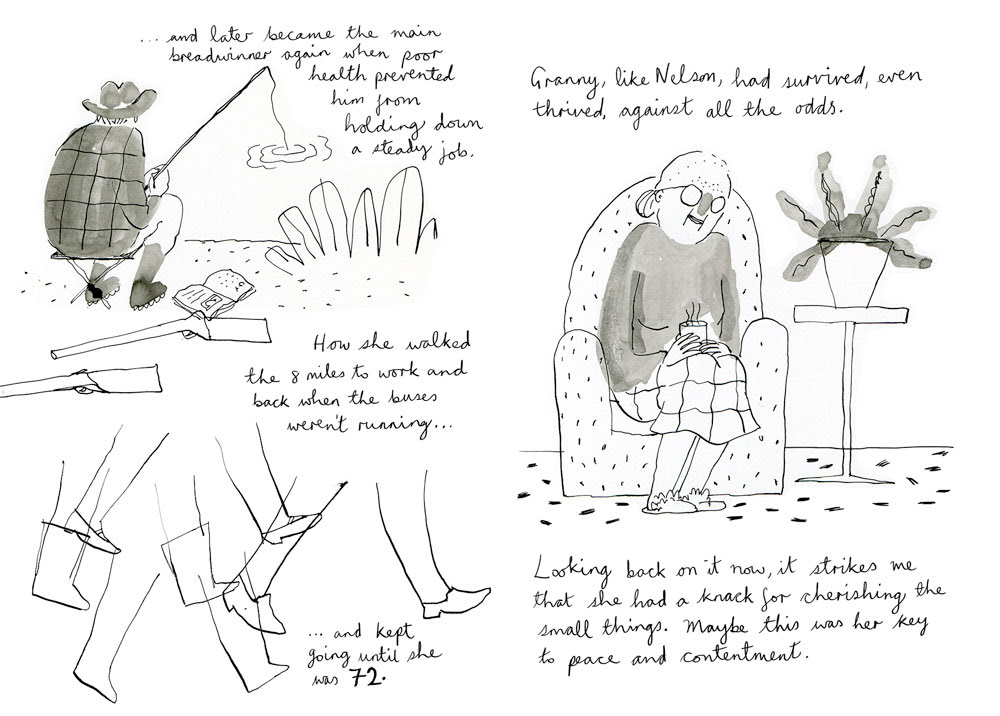 ... and later became the main
breadwinner again when poor
health prevented
him from
holding down
a steady job.
How she walked
the 8 miles to work and
back when the buses
weren't running...
... and kept
going until she
was 72.
Granny, like Nelson, had survived, even
thrived, against all the odds.
Looking back on it now, it strikes me
that she had a knack for cherishing the
small things. Maybe this was her key
to peace and contentment.